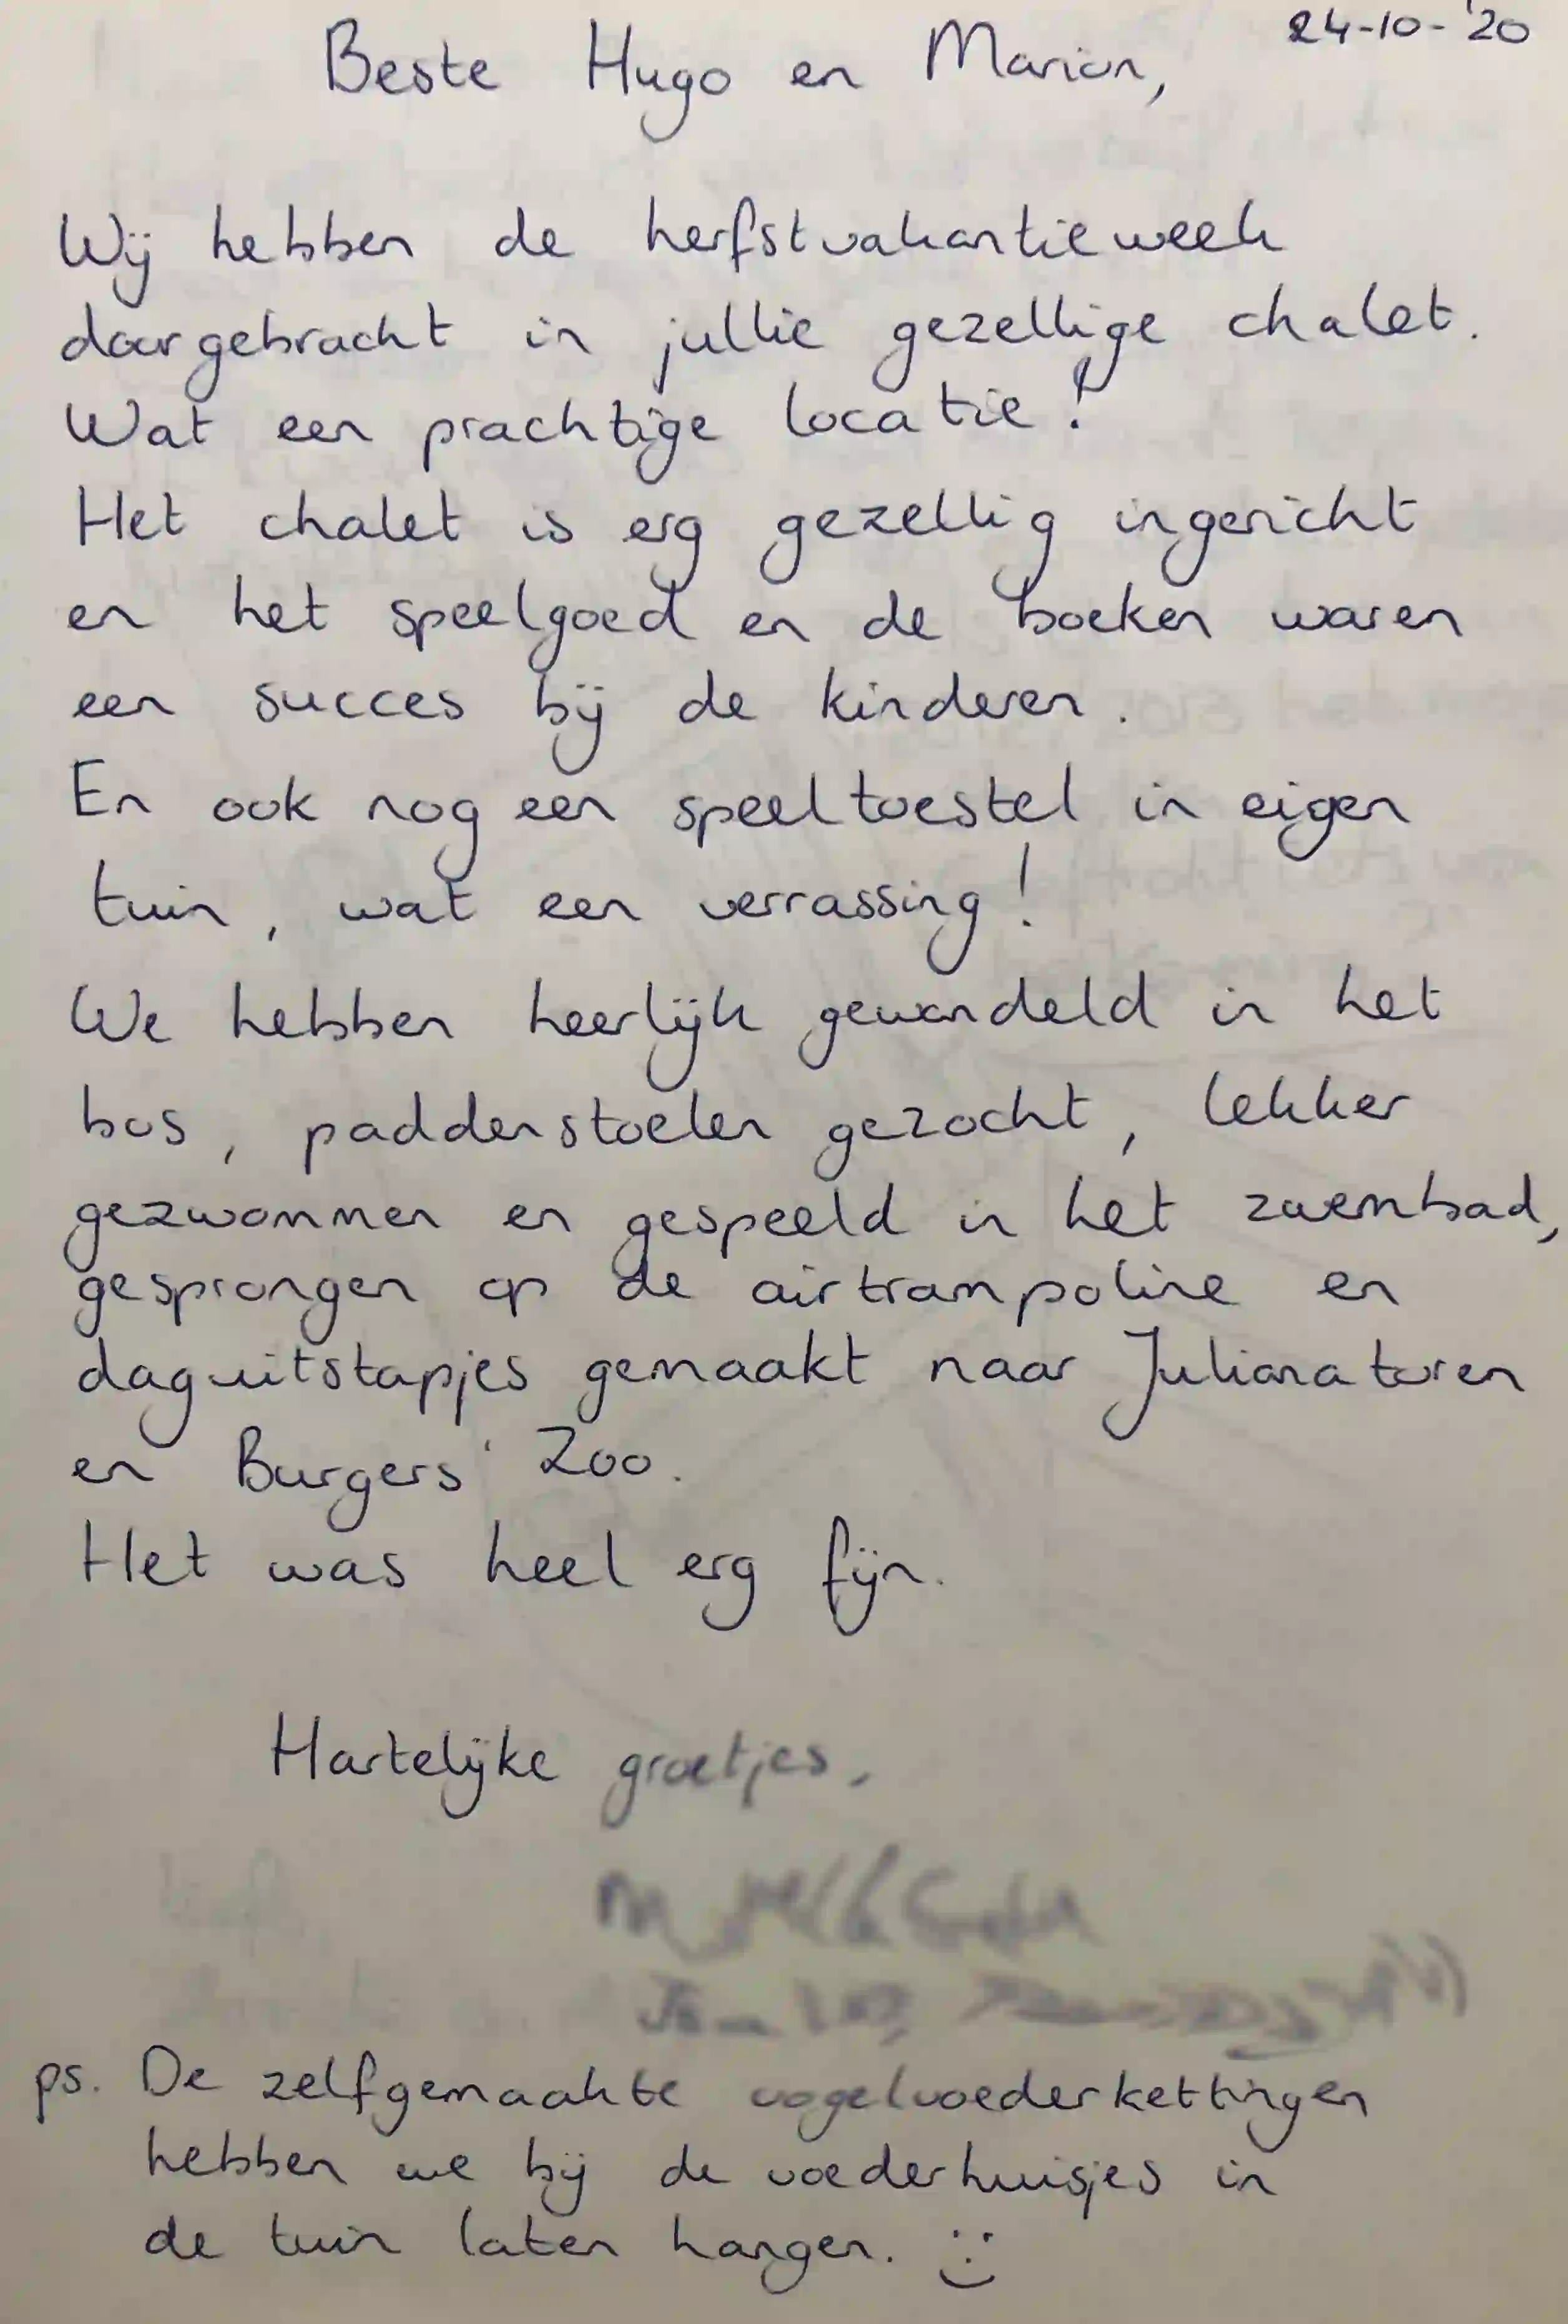 24-10-'20
Beste Hugo en Marion,
Wij hebben de herfstvakantieweek
doorgebracht in jullie gezellige chalet.
Wat een prachtige locatie!
Het chalet is erg gezellig ingericht
en het speelgoed en de boeken waren
een succes bij de kinderen.
En ook nog een speeltoestel in eigen
tuin, wat een verrassing!
We hebben heerlijk gewandeld in het
bos, paddenstoelen gezocht, lekker
gezwommen en gespeeld in het zwembad,
gesprongen op de airtrampoline en
daguitstapjes gemaakt naar Julianatoren
en Burgers' Zoo.
Het was heel erg fijn.
Hartelijke groetjes,
ps. De zelfgemaakte vogelvoederkettingen
hebben we bij de voederhuisjes in
de tuin laten hangen. :)